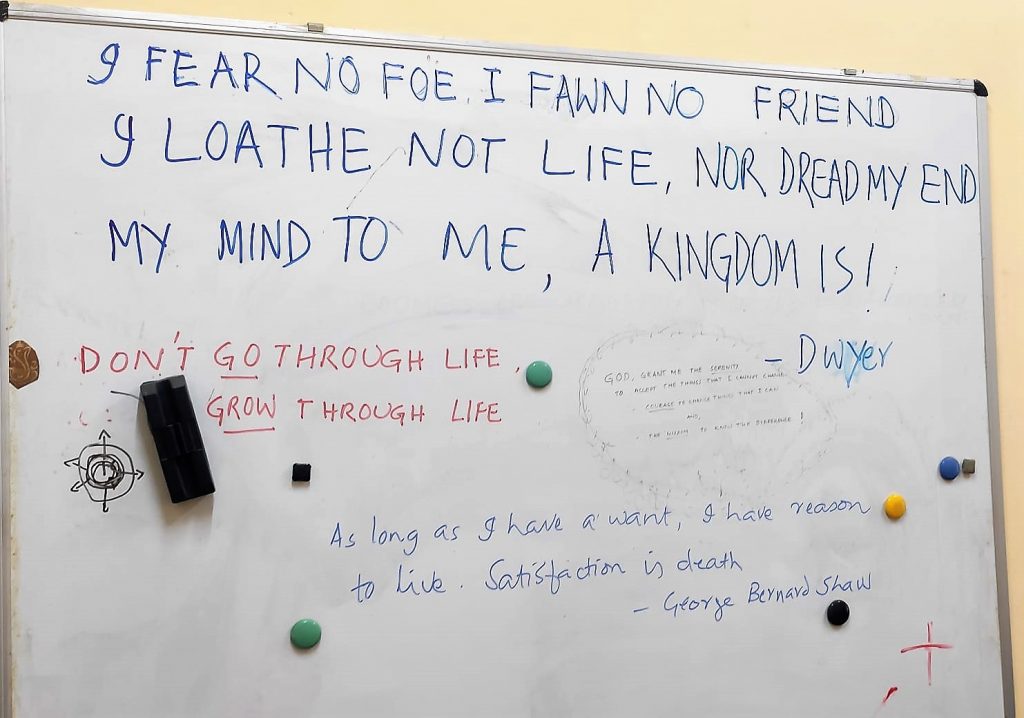 I FEAR NO FOE, I FAWN NO FRIEND
I LOATHE NOT LIFE, NOR DREAD MY END
MY MIND TO ME, A KINGDOM IS!
- Dwyer
DON'T GO THROUGH LIFE,
GROW THROUGH LIFE
GOD, GRANT ME THE SERENITY
TO ACCEPT THE THINGS THAT I CANNOT CHANGE
COURAGE TO CHANGE THINGS THAT I CAN
AND,
THE TO KNOW THE DIFFERENCE !
As long as I have a want, I have reason
to live. Satisfaction is death
- George Bernard Shaw